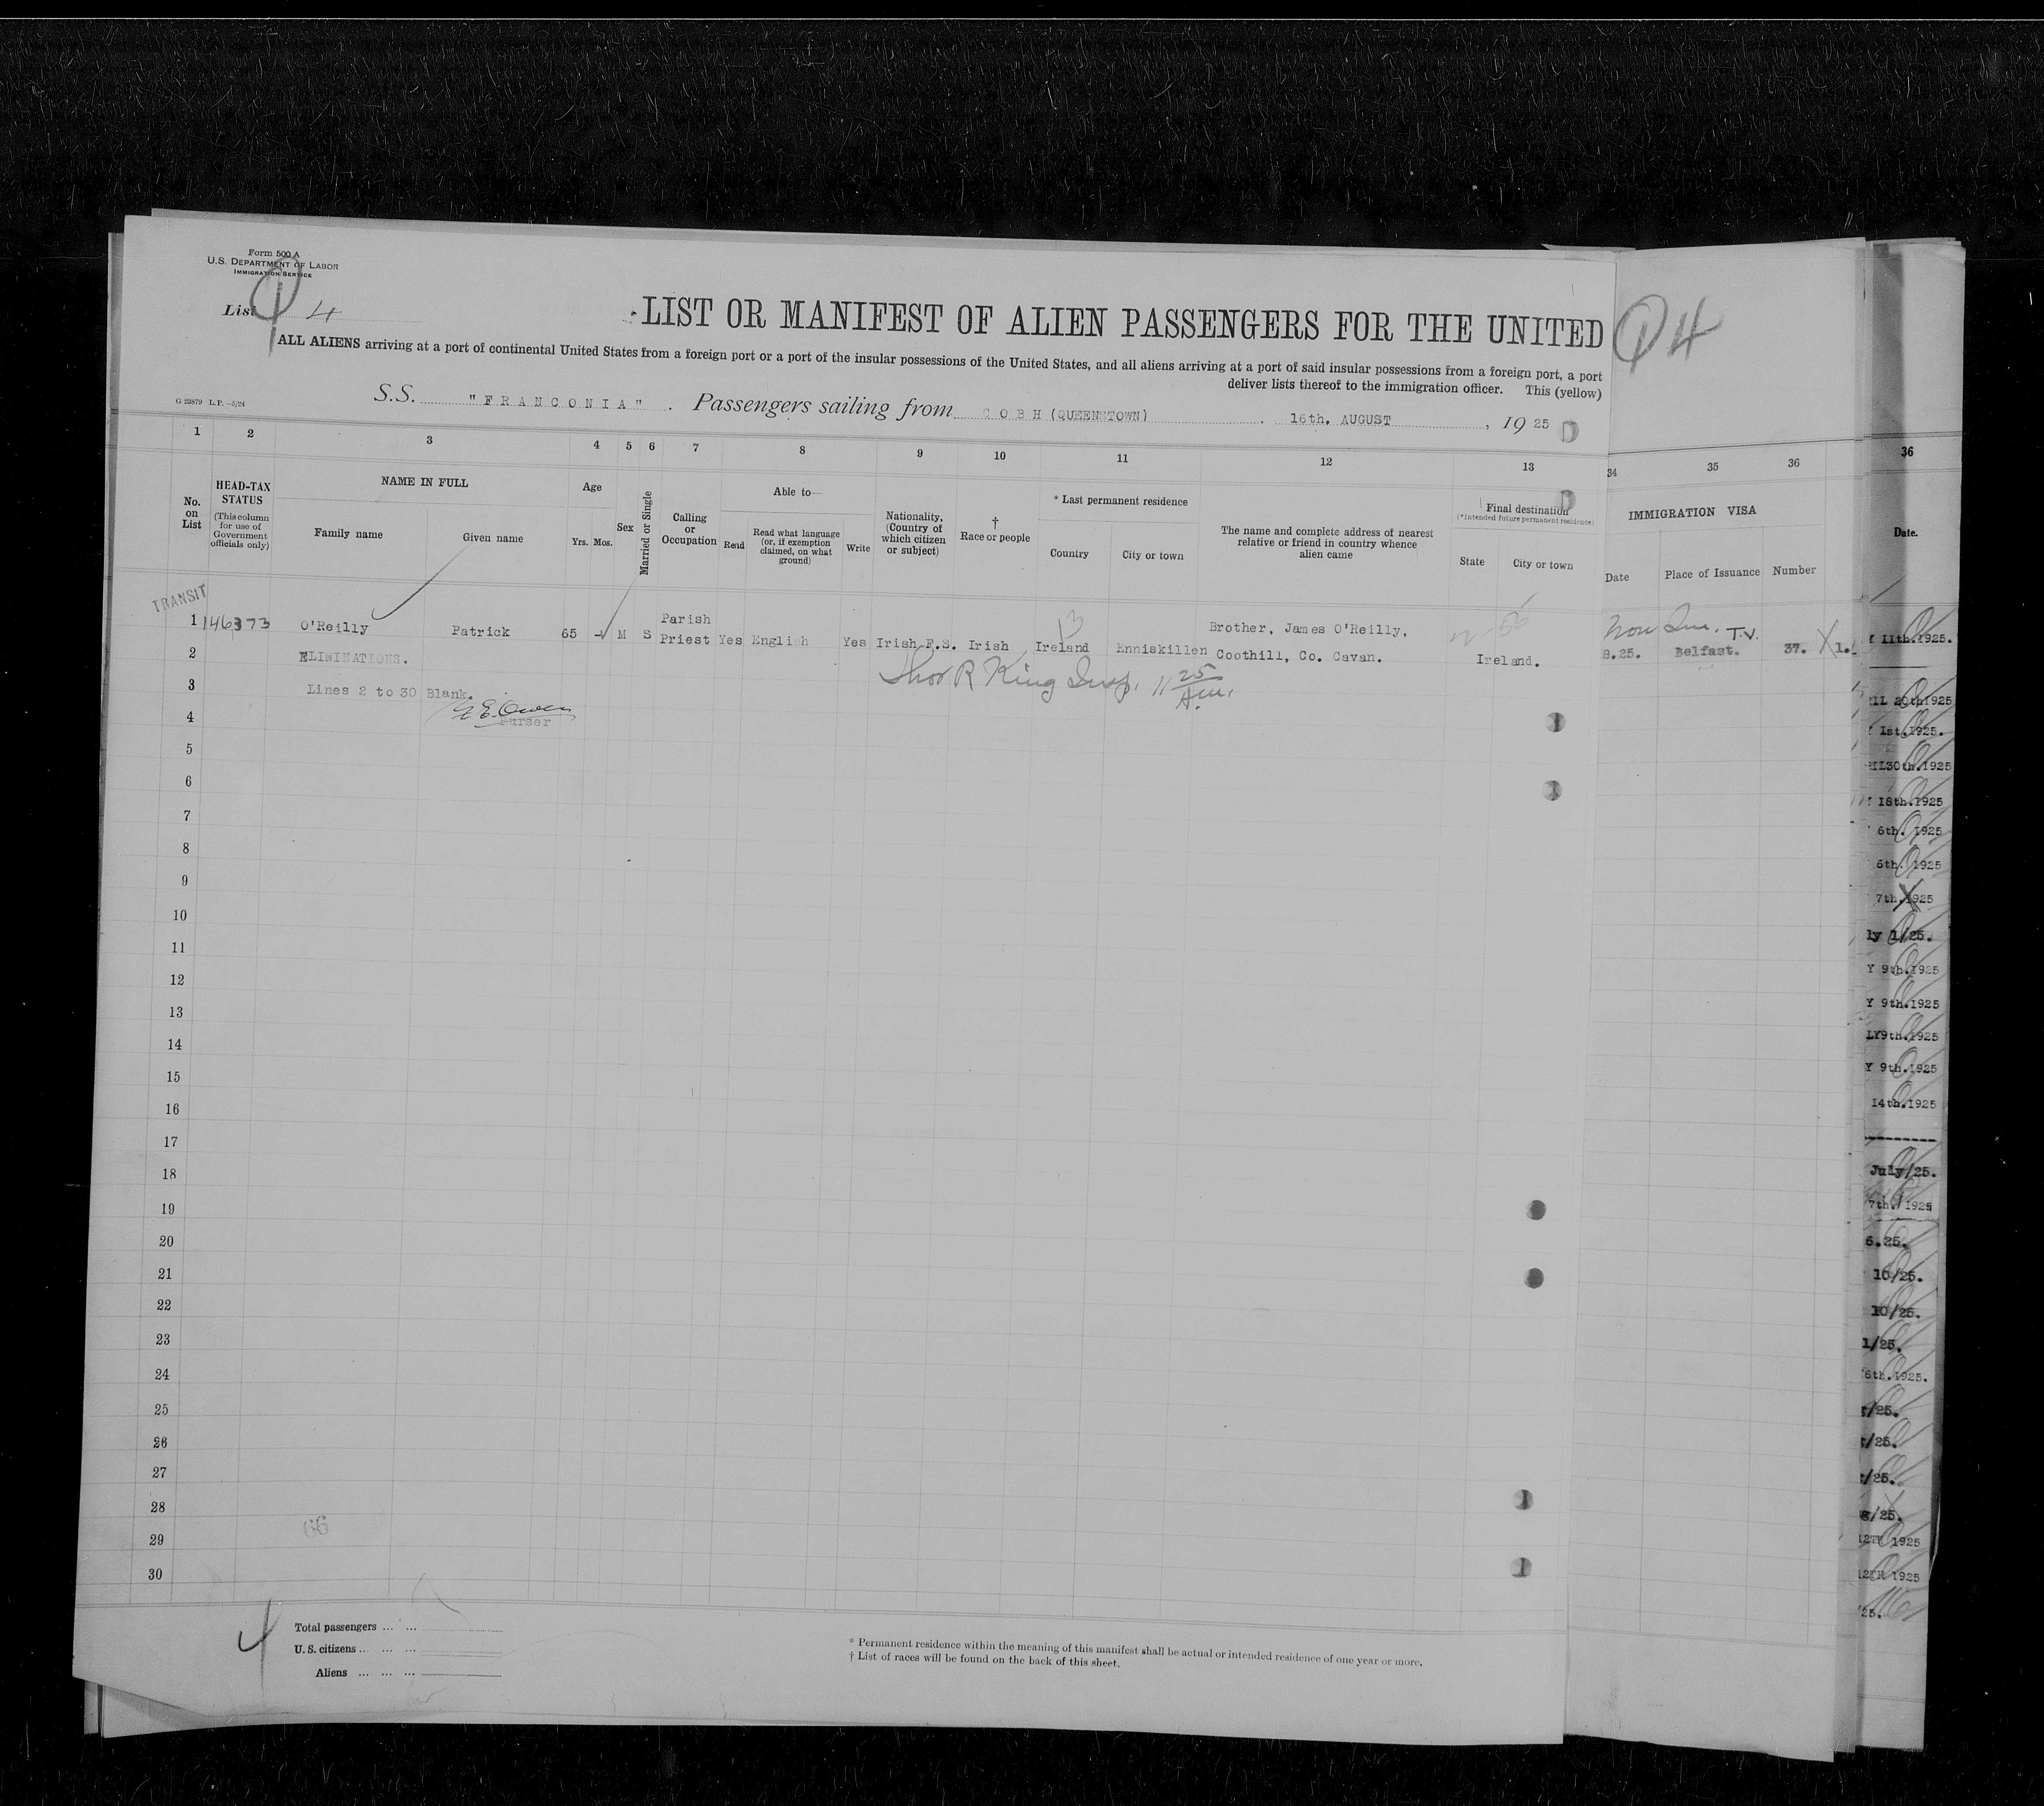 Form 500 A
U.S. DEPARTMENT OF LABOR
IMMIGRATION SERVICE
List 4
LIST OR MANIFEST OF ALIEN PASSENGERS FOR THE UNITED
1 4
ALL ALIENS arriving at a port of continental United States from a foreign port or a port of the insular possessions of the United States, and all aliens arriving at a port of said insular possessions from a foreign port, a port
deliver lists thereof to the immigration officer. This (yellow)
G 23879 L.P.—5/24
S.S. "FRANCONIA". Passengers sailing from COBH (QUEENSTOWN). 16th. AUGUST, 1925
1 2 3 4 5 6 7 8 9 10 11 12 13 34 35 36 36
No. on List
HEAD-TAX STATUS
(This column for use of Government officials only)
NAME IN FULL
Family name
Given name
Age
Yrs. Mos.
Sex
Married or Single
Calling or Occupation
Able to—
Read
Read what language (or, if exemption claimed, on what ground)
Write
Nationality, (Country of which citizen or subject)
† Race or people
* Last permanent residence
Country
City or town
The name and complete address of nearest relative or friend in country whence alien came
Final destination
(*Intended future permanent residence)
State
City or town
IMMIGRATION VISA
Date
Place of Issuance
Number
Date.
TRANSIT
1 146373 O'Reilly Patrick 65 - M S Parish Priest Yes English Yes Irish F.S. Irish Ireland Enniskillen Brother, James O'Reilly, Coothill, Co. Cavan. Ireland. 8.25. Belfast. T.V. 37. X 1.
13
2 ELIMINATIONS.
Thos R King Insp. 11 25 A.m.
3 Lines 2 to 30 Blank.
E. Owen
Purser
4
5
6
7
8
9
10
11
12
13
14
15
16
17
18
19
20
21
22
23
24
25
26
27
28
66
29
30
11th.1925.
20th1925
1st.1925.
30th.1925
18th.1925
6th. 1925
6th. 1925
7th.1925
ly 1/25.
Y 9th.1925
Y 9th.1925
LY9th.1925
Y 9th.1925
14th.1925
July/25.
7th./1925
6.25.
10/25.
10/25.
1/25.
6th.1925.
/25.
/25.
/25.
g/25.
12TH 1925
12TH 1925
/25.
4
Total passengers ... ...
U. S. citizens ... ... ...
Aliens ... ... ...
* Permanent residence within the meaning of this manifest shall be actual or intended residence of one year or more.
† List of races will be found on the back of this sheet.